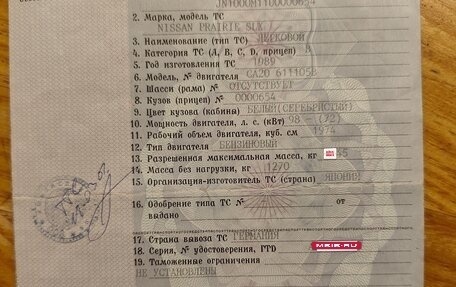 JN1000M1100000654
2. Марка, модель ТС
NISSAN PRAIRIE SLX
3. Наименование (тип ТС) ЛЕГКОВОЙ
4. Категория ТС (A, B, C, D, прицеп) B
5. Год изготовления ТС 1989
6. Модель, № двигателя CA20 611105B
7. Шасси (рама) № ОТСУТСТВУЕТ
8. Кузов (прицеп) № 0000654
9. Цвет кузова (кабины) БЕЛЫЙ(СЕРЕБРИСТЫЙ)
10. Мощность двигателя, л. с. (кВт) 98 - (72)
11. Рабочий объем двигателя, куб. см 1974
12. Тип двигателя БЕНЗИНОВЫЙ
13. Разрешенная максимальная масса, кг
14. Масса без нагрузки, кг 1270
15. Организация-изготовитель ТС (страна) ЯПОНИЯ
16. Одобрение типа ТС № от
выдано
17. Страна вывоза ТС ГЕРМАНИЯ
18. Серия, № удостоверения, ГТД
19. Таможенные ограничения
НЕ УСТАНОВЛЕНЫ